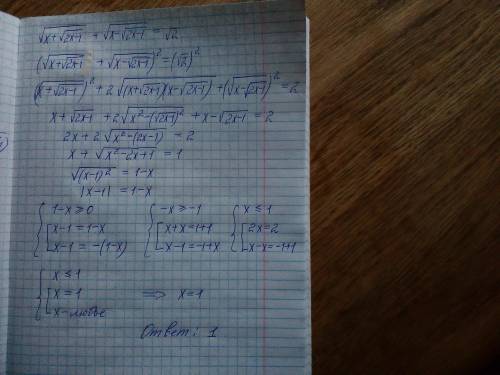 √(x+√(2x-1)) + √(x-√(2x-1)) = √2
(√(x+√(2x-1)) + √(x-√(2x-1)))² = (√2)²
(√(x+√(2x-1)))² + 2√((x+√(2x-1))(x-√(2x-1))) + (√(x-√(2x-1)))² = 2
x + √(2x-1) + 2√(x²-(√(2x-1))²) + x - √(2x-1) = 2
2x + 2√(x²-(2x-1)) = 2
x + √(x²-2x+1) = 1
√((x-1)²) = 1-x
|x-1| = 1-x
{ 1-x ≥ 0 { -x ≥ -1 { x ≤ 1
[ x-1 = 1-x [ x+x = 1+1 [ 2x = 2
x-1 = -(1-x) x-1 = -1+x x-x = -1+1
{ x ≤ 1
[ x = 1 ⟹ x = 1
x - любое
Ответ: 1